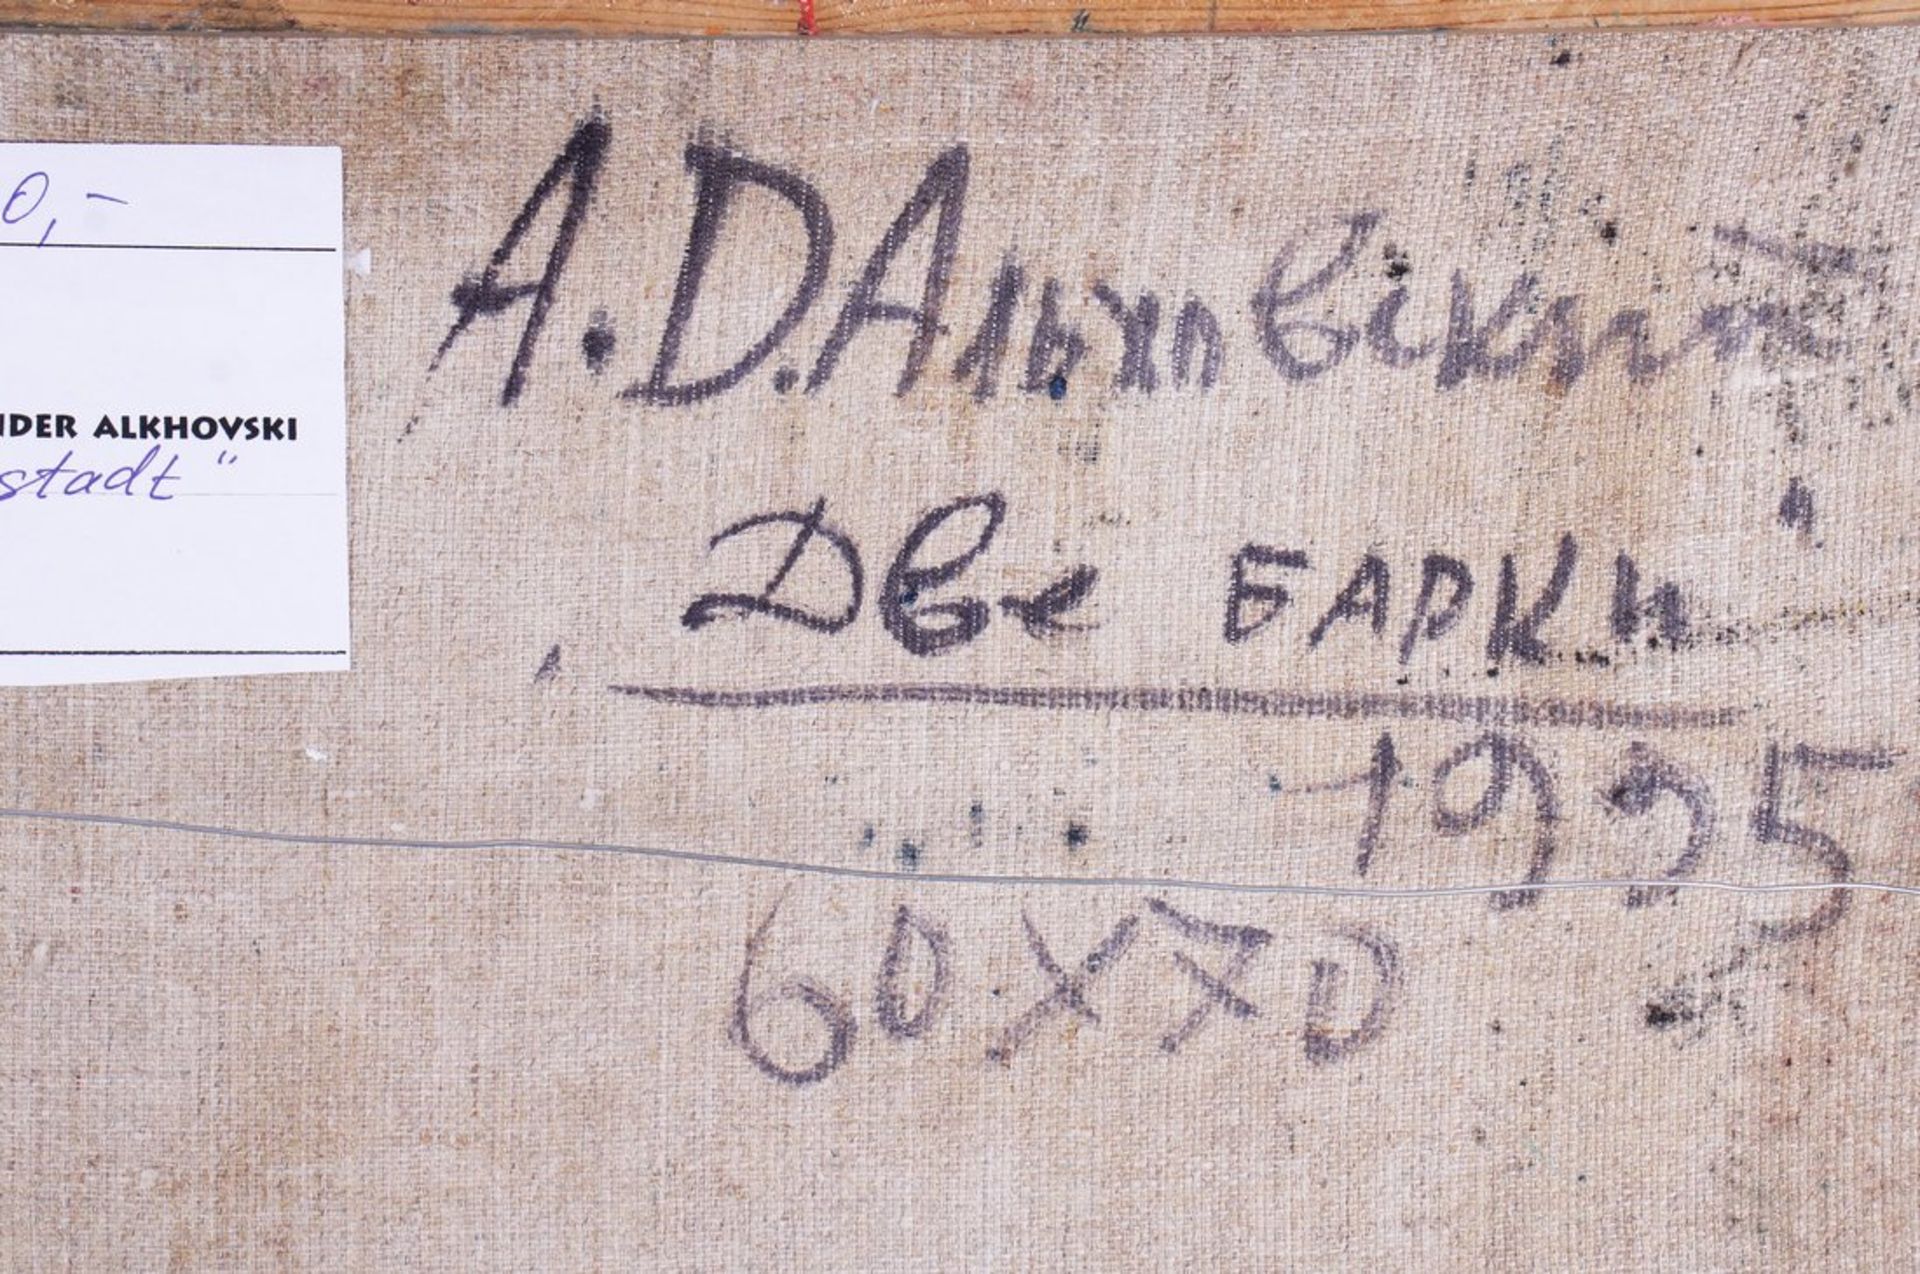 0,-
NDER ALKHOVSKI
stadt"
А.D.Альховский
Две БАРКИ
1995
60x70